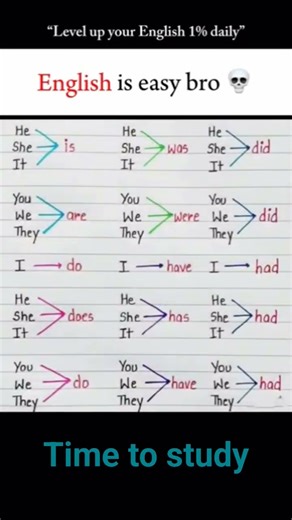 “Level up your English 1% daily”
English is easy bro 💀
He He He
She is She was She did
It It It
You You You
We are We were We did
They They They
I do I have I had
He He He
She does She has She had
It It It
You You You
We do We have We had
They They They
Time to study